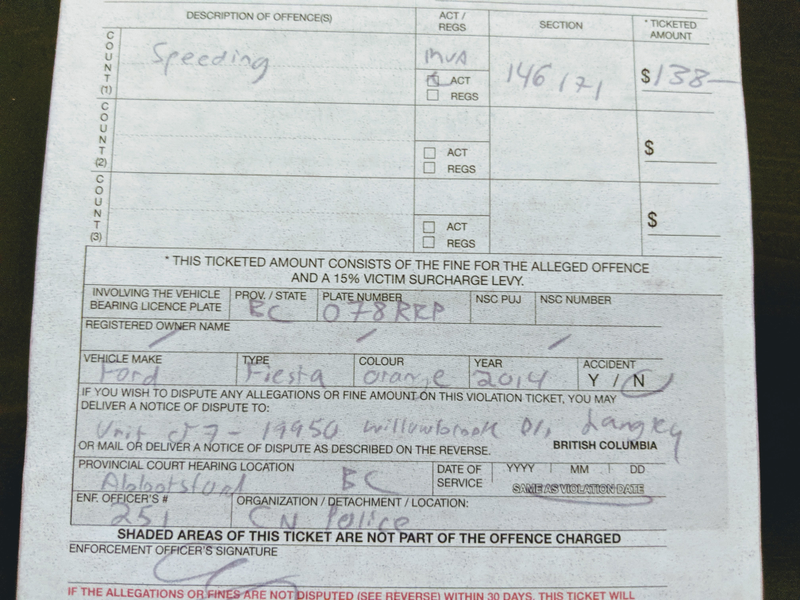 DESCRIPTION OF OFFENCE(S) ACT / REGS SECTION * TICKETED AMOUNT
COUNT (1) Speeding MVA ACT REGS 146 (7) $138-
COUNT (2) ACT REGS $
COUNT (3) ACT REGS $
* THIS TICKETED AMOUNT CONSISTS OF THE FINE FOR THE ALLEGED OFFENCE
AND A 15% VICTIM SURCHARGE LEVY.
INVOLVING THE VEHICLE BEARING LICENCE PLATE PROV. / STATE PLATE NUMBER NSC PUJ NSC NUMBER
BC 078RRP
REGISTERED OWNER NAME
VEHICLE MAKE TYPE COLOUR YEAR ACCIDENT
Ford Fiesta orange 2014 Y / N
IF YOU WISH TO DISPUTE ANY ALLEGATIONS OR FINE AMOUNT ON THIS VIOLATION TICKET, YOU MAY
DELIVER A NOTICE OF DISPUTE TO:
Unit 19950 Willowbrook Dr, Langley
OR MAIL OR DELIVER A NOTICE OF DISPUTE AS DESCRIBED ON THE REVERSE. BRITISH COLUMBIA
PROVINCIAL COURT HEARING LOCATION DATE OF SERVICE YYYY MM DD
Abbotsford BC SAME AS VIOLATION DATE
ENF. OFFICER'S # ORGANIZATION / DETACHMENT / LOCATION:
251 CN Police
SHADED AREAS OF THIS TICKET ARE NOT PART OF THE OFFENCE CHARGED
ENFORCEMENT OFFICER'S SIGNATURE
IF THE ALLEGATIONS OR FINES ARE NOT DISPUTED (SEE REVERSE) WITHIN 30 DAYS, THIS TICKET WILL